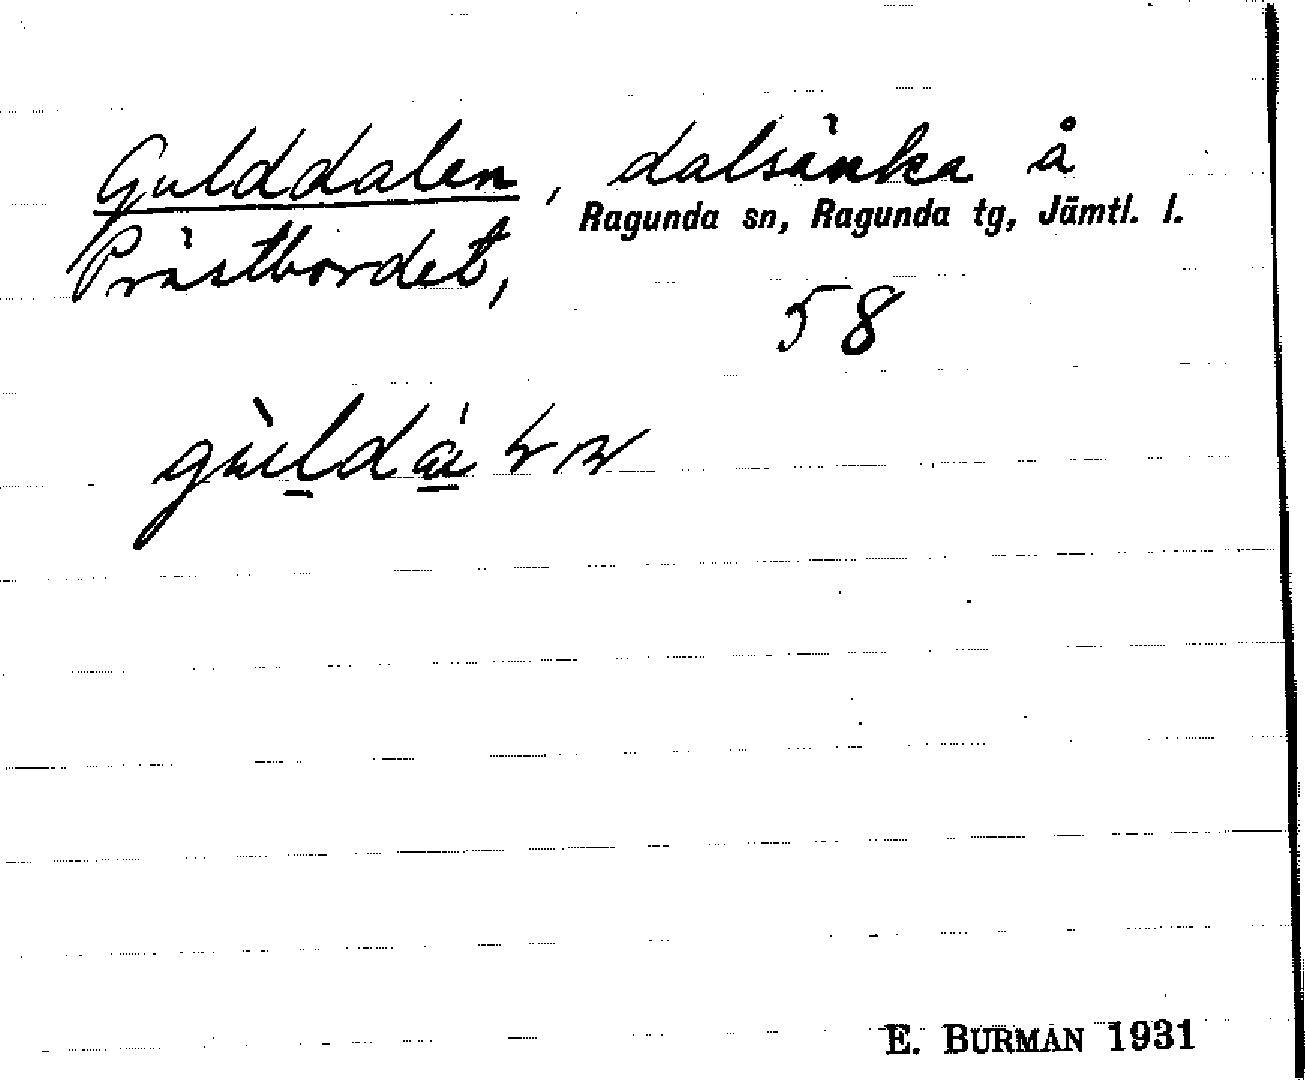 Gulddalen, dalsänka å
Ragunda sn, Ragunda tg, Jämtl. l.
Prästbordet,
58
E. BURMAN 1931